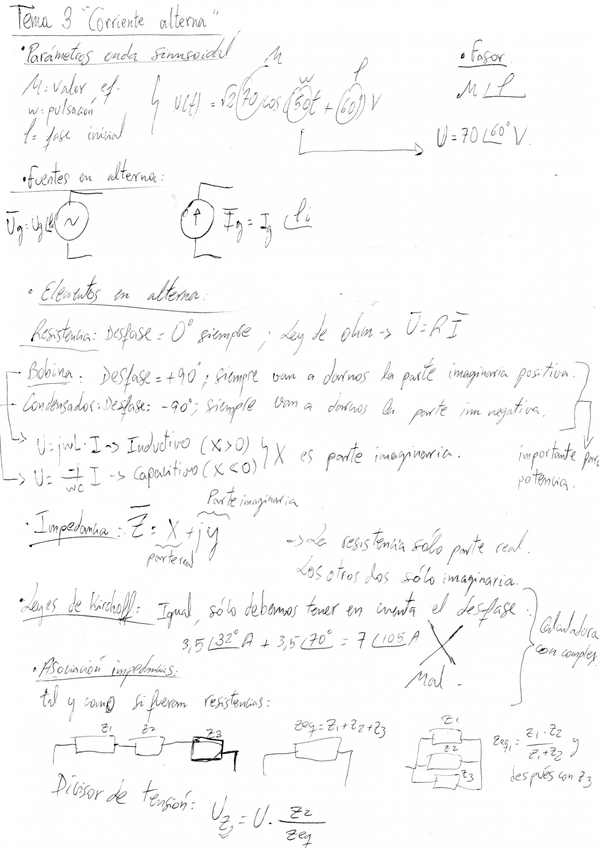 Tema 3 "Corriente alterna"
• Parámetros onda sinusoidal
M: valor ef.
w= pulsación
φ= fase inicial
M w φ
U(t) = √2(70)cos(50t + 60°) V
• Fasor
M∠φ
U=70∠60° V.
• Fuentes en alterna:
Ūg= Ug∠
Īg= Ig ∠φi
• Elementos en alterna:
Resistencia: Desfase = 0° siempre ; Ley de ohm -> Ū=R Ī
Bobina: Desfase = +90°; siempre van a darnos la parte imaginaria positiva.
Condensador: Desfase: -90°; siempre van a darnos la parte im negativa.
U=jwL·I -> Inductivo (X>0)
U= -j/wc I -> Capacitivo (X<0)
X es parte imaginaria.
importante para
potencia.
Parte imaginaria
• Impedancia: Z̄ = X + jy
parte real
-> La resistencia sólo parte real.
Los otros dos sólo imaginaria.
• Leyes de Kirchoff: Igual, sólo debemos tener en cuenta el desfase:
3,5∠32° A + 3,5∠70° = 7∠105 A
Mal.
Calculadora
con complej.
• Asociación impedancias:
tal y como si fueran resistencias:
Z1 Z2 Z3
Zeq=Z1+Z2+Z3
Z1
Z2
Z3
Zeq1= Z1·Z2/Z1+Z2 y
después con Z3
Divisor de tensión: Uz2 = U· Z2/Zeq